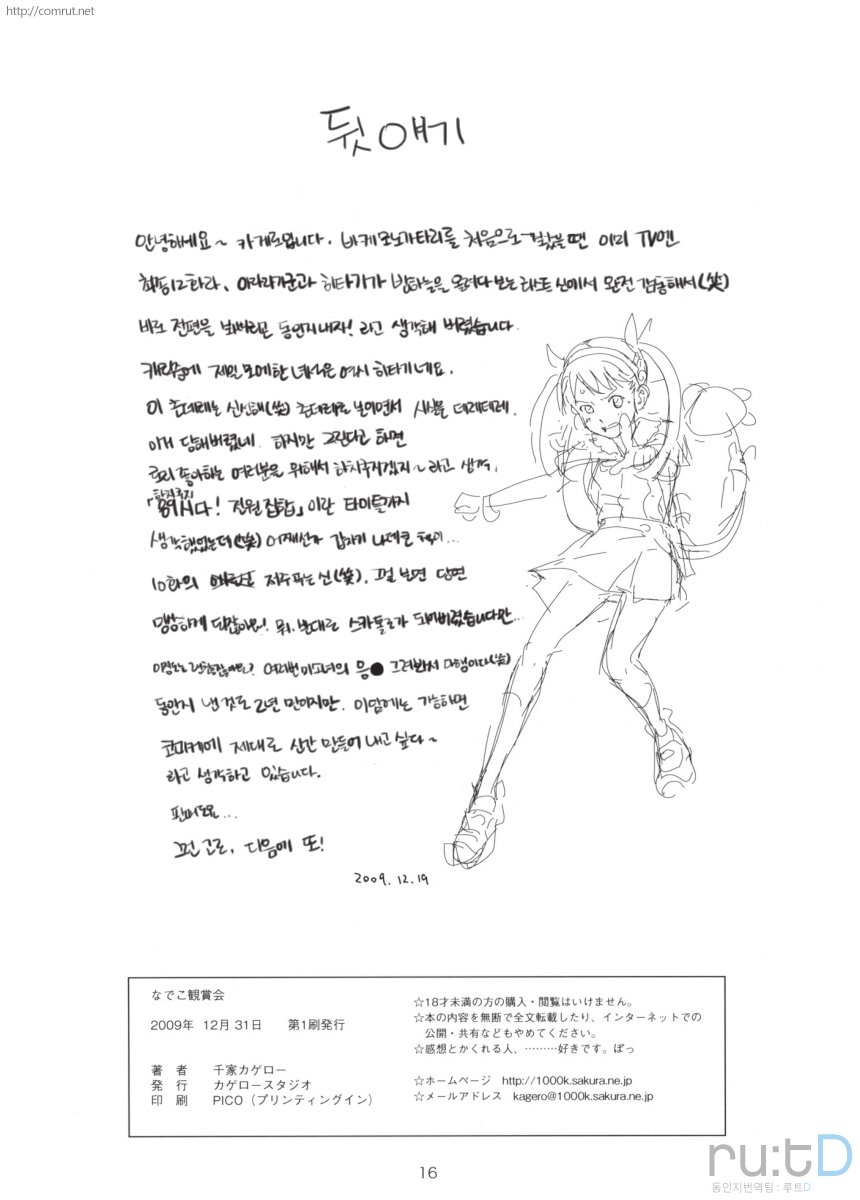 http://comrut.net
뒷얘기
안녕하세요~ 카게로입니다. 바케모노가타리를 처음으로 봤을 땐 이미 TV엔
최종12화라, 아라라기군과 히타기가 밤하늘을 올려다 보는 라스트 신에서 완전 감동해서(笑)
바로 전편을 봐버리곤 동인지내자! 라고 생각해 버렸습니다.
캐릭중에 제일 모에한 녀석은 역시 히타기네요.
이 츤데레는 신선해(笑) 츤데레로 보이면서 사실은 데레데레.
이거 당해버렸네. 하지만 그린다고 하면
로리 좋아하는 여러분을 위해서 하치쿠지겠지~라고 생각,
「89시다! 전원집합」이란 타이틀까지
하치쿠지
생각했었는데(笑) 어째선가 갑자기 나데코
10화의 저주 푸는 신(笑). 그걸 보면 당연
망상하게 되잖아요! 뭐, 반대로 스카톨로가 되어버렸습니다만...
여러번 미소녀의 응● 그려봐서 다행이다(笑)
동인지 낸 것도 2년 만이지만, 이 다음에는 가능하면
코미케에 제대로 신간 만들어 내고 싶다~
라고 생각하고 있습니다.
그런 고로, 다음에 또!
2009.12.19
なでこ観賞会
2009年 12月31日 第1刷発行
著 者 千家カゲロー
発 行 カゲロースタジオ
印 刷 PICO（プリンティングイン）
☆18才未満の方の購入・閲覧はいけません。
☆本の内容を無断で全文転載したり、インターネットでの
公開・共有などもやめてください。
☆感想とかくれる人、………好きです。ぽっ
☆ホームページ http://1000k.sakura.ne.jp
☆メールアドレス kagero@1000k.sakura.ne.jp
16
ru:tD
동인지번역팀 : 루트D